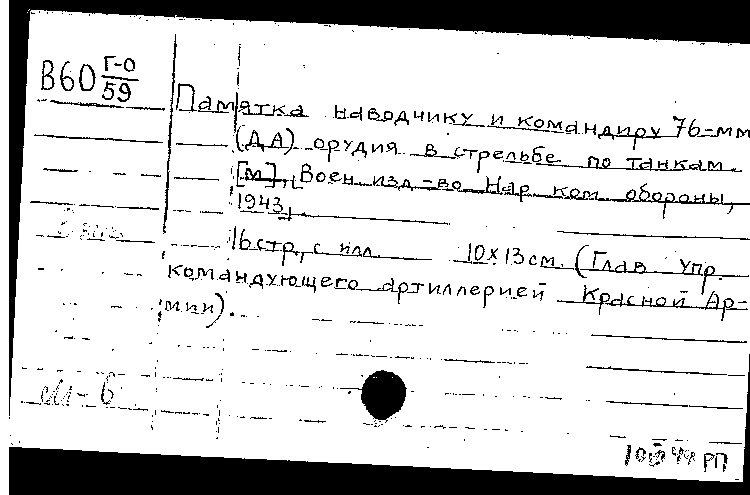 В60 Г-0/59
Памятка наводчику и командиру 76-мм
(ДА) орудия в стрельбе по танкам.
[М], Воен. изд-во Нар. ком. обороны,
1943.
16 стр., с илл. 10х13 см. (Глав. упр.
командующего артиллерией Красной Ар-
мии).
М-6
РП